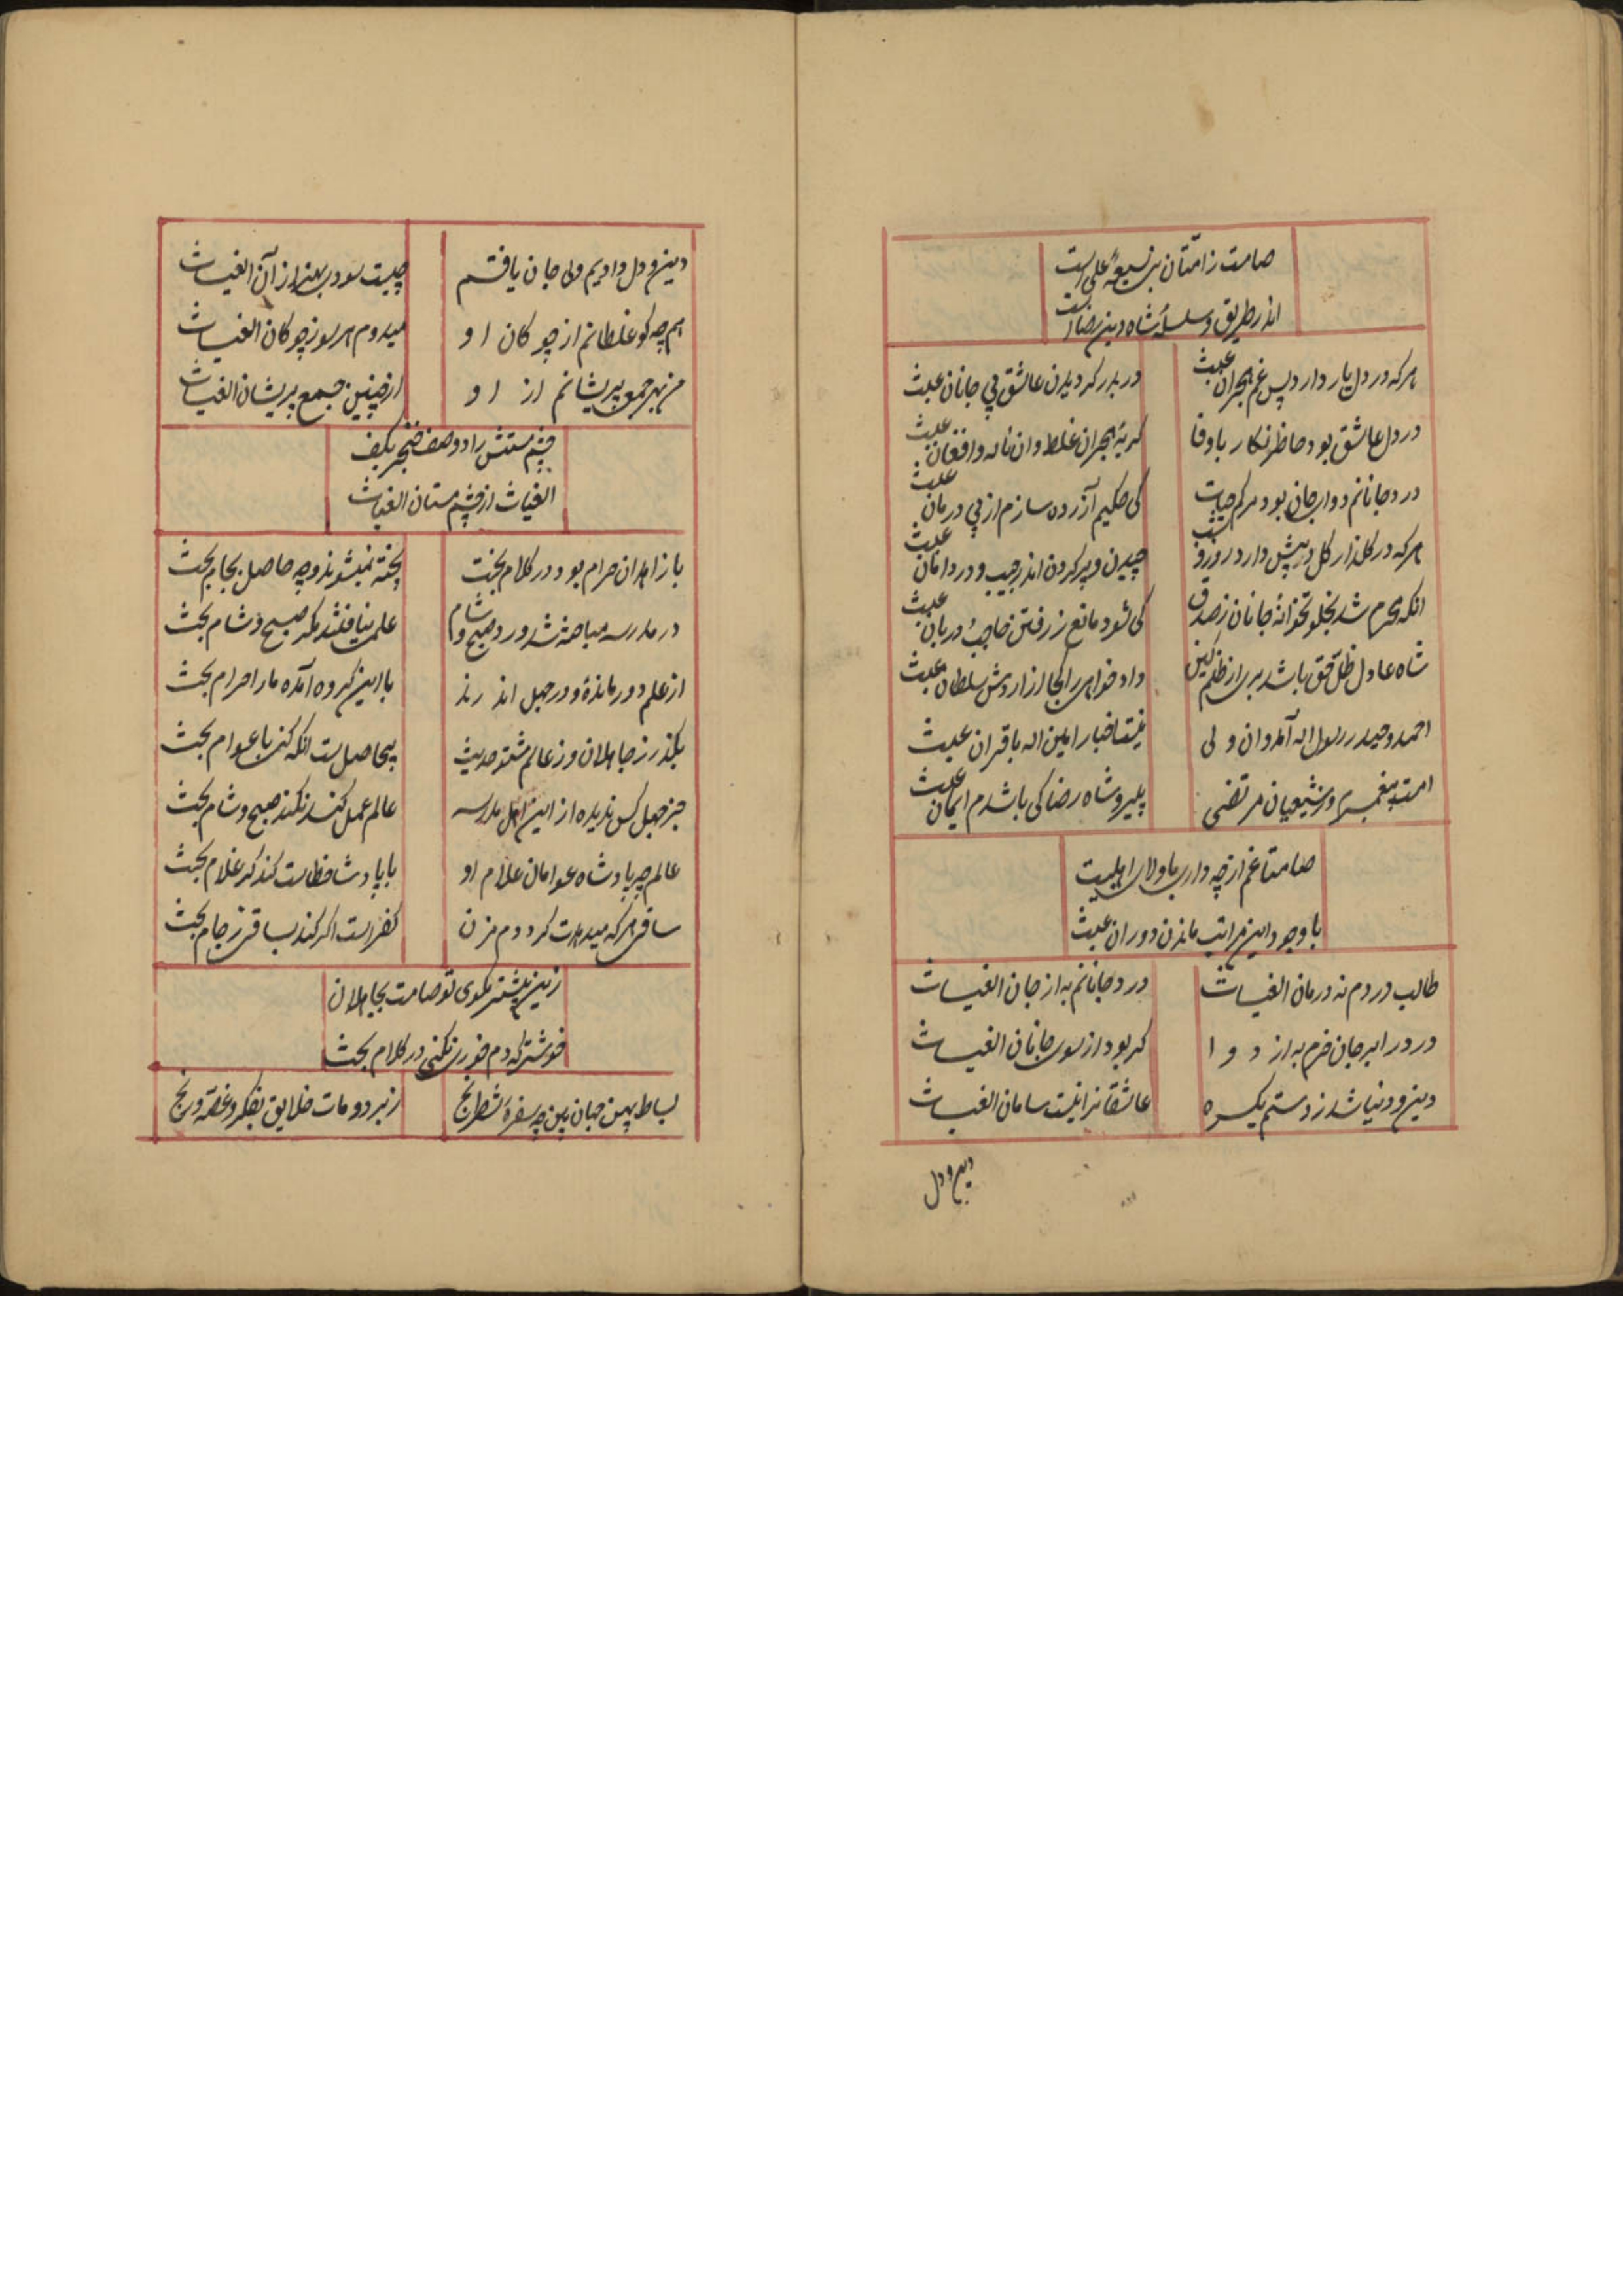 صامت ز امتان نبی شیعهٔ علی است
اندر طریق و سلسلهٔ شاه دین رضا است
هر که در دل یار دارد پس غم هجران عبث
در بدر گردیدن عاشق پی جانان عبث
در دل عاشق بود حاظر نکار با وفا
کریهٔ هجران غلط وان ناله و افغان عبث
درد جانانم دوای جان بود مرکم حیات
کی حکیم آزرده سازم از پی درمان عبث
هر که در کلذار کل در پیش دارد روز و شب
چیدن و پر کردن اندر جیب و در دامان عبث
انکه محرم شد بخلوتخوانهٔ جانان ز صدق
کی شود مانع ز رفتن حاجب و دربان عبث
شاه عادل ظل حق باشد بری از ظلم کین
داد خواهی را کجا ازاردش سلطان عبث
احمد و حیدر رسول اله آمد وان ولی
نیست اخبار امین اله با قران عبث
امت پیغمبری و شیعیان مرتضی
پیرو شاه رضا کی باشدم ایمان عبث
صامتا غم از چه داری با ولای اهلبیت
با وجود این مراتب ماندن دوران عبث
طالب دردم نه درمان الغیاث
درد جانانم به از جان الغیاث
درد را بر جان خرم به از دوا
کر بود از سوی جانان الغیاث
دین و دنیا شد ز دستم یکسره
عاشقانرا نیست سامان الغیاث
دین و دل
دین و دل دادیم ولی جان یافتم
چیست سودی بهتر از آن الغیاث
همچه کو غلطانم از چوکان او
میدوم هر سو ز چوکان الغیاث
من بهر جمعی پریشانم از او
از چنین جمع پریشان الغیاث
چشم مستش را دو صف خنجر بکف
الغیاث از چشم مستان الغیاث
با زاهدان حرام بود در کلام بحث
پخته نمیشوند و چه حاصل بخام بحث
در مدرسه مباحثه شد ورد صبح و شام
علمی نیافتند مکر صبح و شام بحث
از علم دور مانده و در جهل اندرند
با این کروه آمده ما را حرام بحث
بکذر ز جاهلان و ز عالم شنو حدیث
بیحاصل است انکه کنی با عوام بحث
جز جهل کس ندیده از این اهل مدرسه
عالم عمل کند نکند صبح و شام بحث
عالم چه پادشاه عوامان غلام او
با پادشا خطاست کند کر غلام بحث
ساقی هر که میدهدت کرد و دم مزن
کفر است اکر کند بساقی ز جام بحث
زین بیشتر مکوی تو صامت بجاهلان
خوشتر که دم خوری نکنی در کلام بحث
بساط پهن جهان بین چه سفرهٔ شطرنج
ز نبرد و مات خلایق بفکر و غصه و رنج